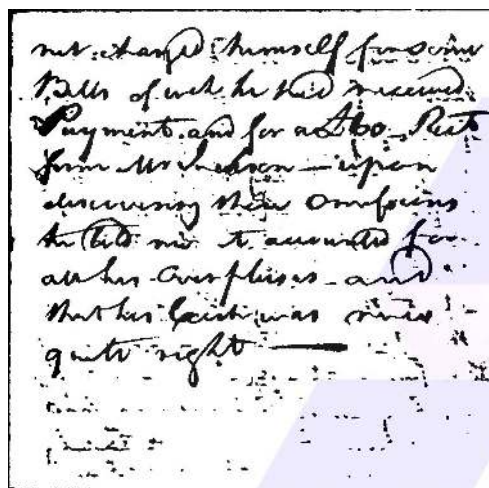 not charged himself for some
Bills of wch he had received
Payment and for a Rect
from Mr — upon
discovering these Omissions
he told me it accounted for
all his Overpluses — and
that his Cash was now
quite right —